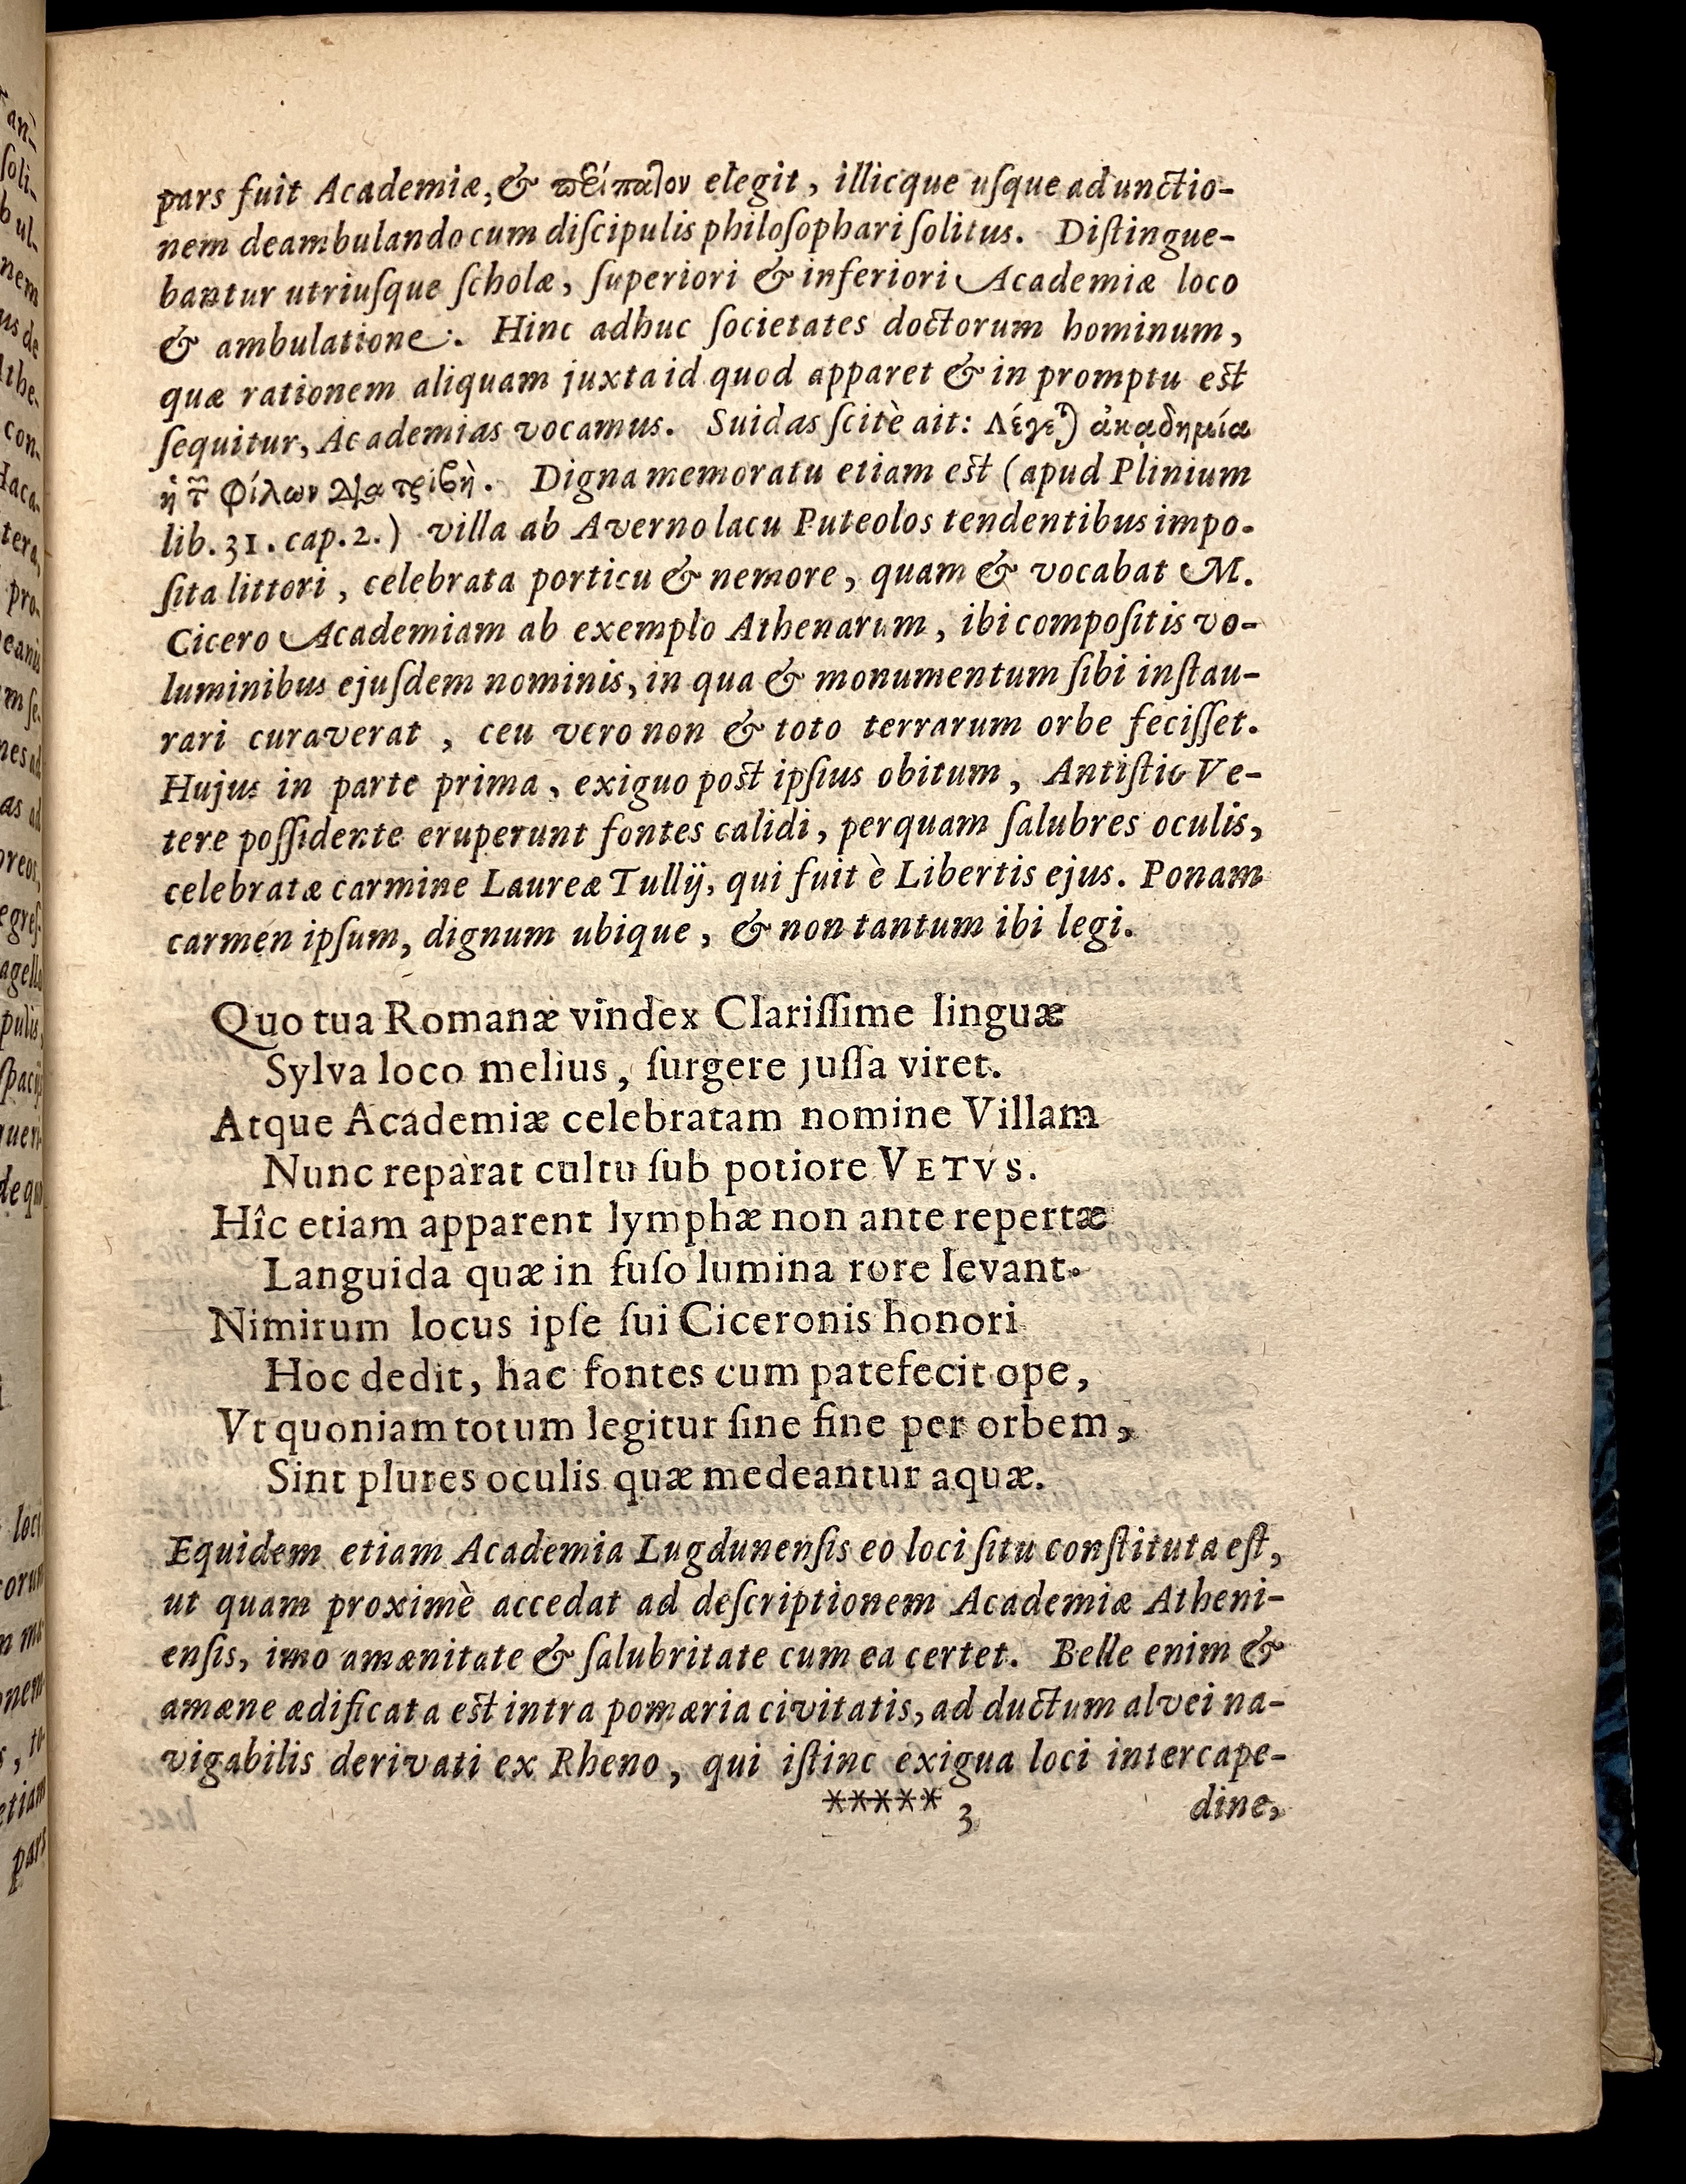 pars fuit Academiæ, & περίπατον elegit, illicque uſque ad unctio-
nem deambulando cum diſcipulis philoſophari ſolitus. Diſtingue-
bantur utriuſque ſcholæ, ſuperiori & inferiori Academiæ loco
& ambulatione. Hinc adhuc ſocietates doctorum hominum,
quæ rationem aliquam juxta id quod apparet & in promptu est
ſequitur, Academias vocamus. Suidas ſcitè ait: Λέγε) ἀκαδημία
ἡ τ̃ Φίλων Διατριβὴ. Digna memoratu etiam est (apud Plinium
lib. 31. cap. 2.) villa ab Averno lacu Puteolos tendentibus impo-
ſita littori, celebrata porticu & nemore, quam & vocabat M.
Cicero Academiam ab exemplo Athenarum, ibi compoſitis vo-
luminibus ejuſdem nominis, in qua & monumentum ſibi inſtau-
rari curaverat, ceu vero non & toto terrarum orbe feciſſet.
Hujus in parte prima, exiguo post ipſius obitum, Antiſtio Ve-
tere poſſidente eruperunt fontes calidi, perquam ſalubres oculis,
celebratæ carmine Laureæ Tullij, qui fuit è Libertis ejus. Ponam
carmen ipſum, dignum ubique, & non tantum ibi legi.
Quo tua Romanæ vindex Clariſſime linguæ
Sylva loco melius, ſurgere juſſa viret.
Atque Academiæ celebratam nomine Villam
Nunc reparat cultu ſub potiore VETVS.
Hîc etiam apparent lymphæ non ante repertæ
Languida quæ in fuſo lumina rore levant.
Nimirum locus ipſe ſui Ciceronis honori
Hoc dedit, hac fontes cum patefecit ope,
Vt quoniam totum legitur ſine fine per orbem,
Sint plures oculis quæ medeantur aquæ.
Equidem etiam Academia Lugdunenſis eo loci ſitu conſtituta eſt,
ut quam proximè accedat ad deſcriptionem Academiæ Atheni-
enſis, imo amænitate & ſalubritate cum ea certet. Belle enim &
amæne ædificata est intra pomæria civitatis, ad ductum alvei na-
vigabilis derivati ex Rheno, qui iſtinc exigua loci intercape-
***** 3 dine,